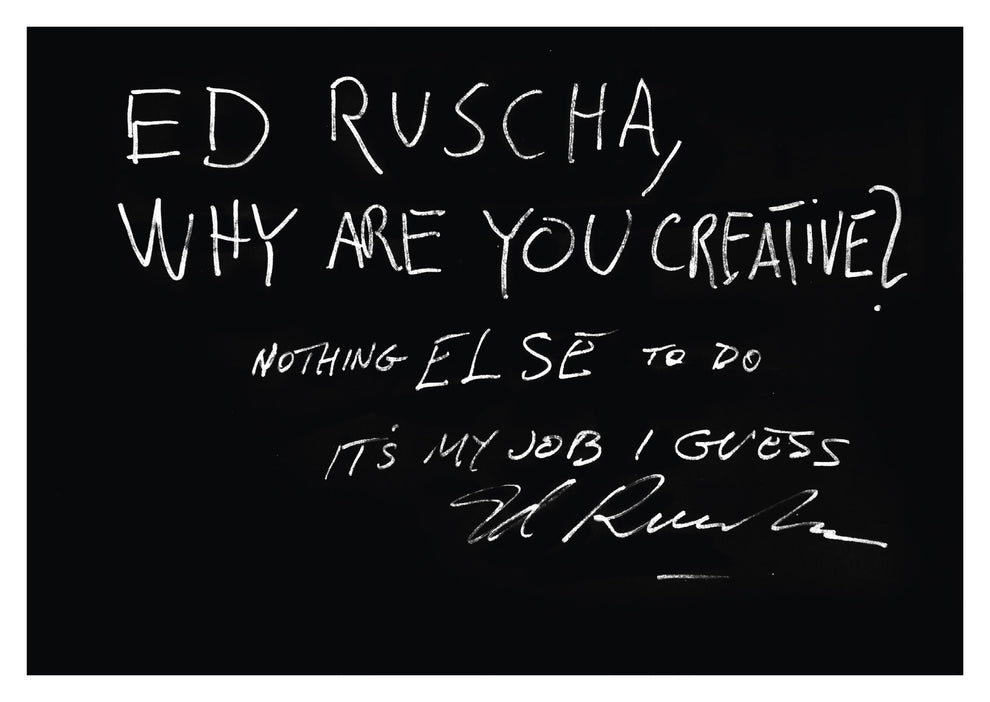 ED RUSCHA,
WHY ARE YOU CREATIVE?
NOTHING ELSE TO DO
IT'S MY JOB I GUESS
Ed Ruscha